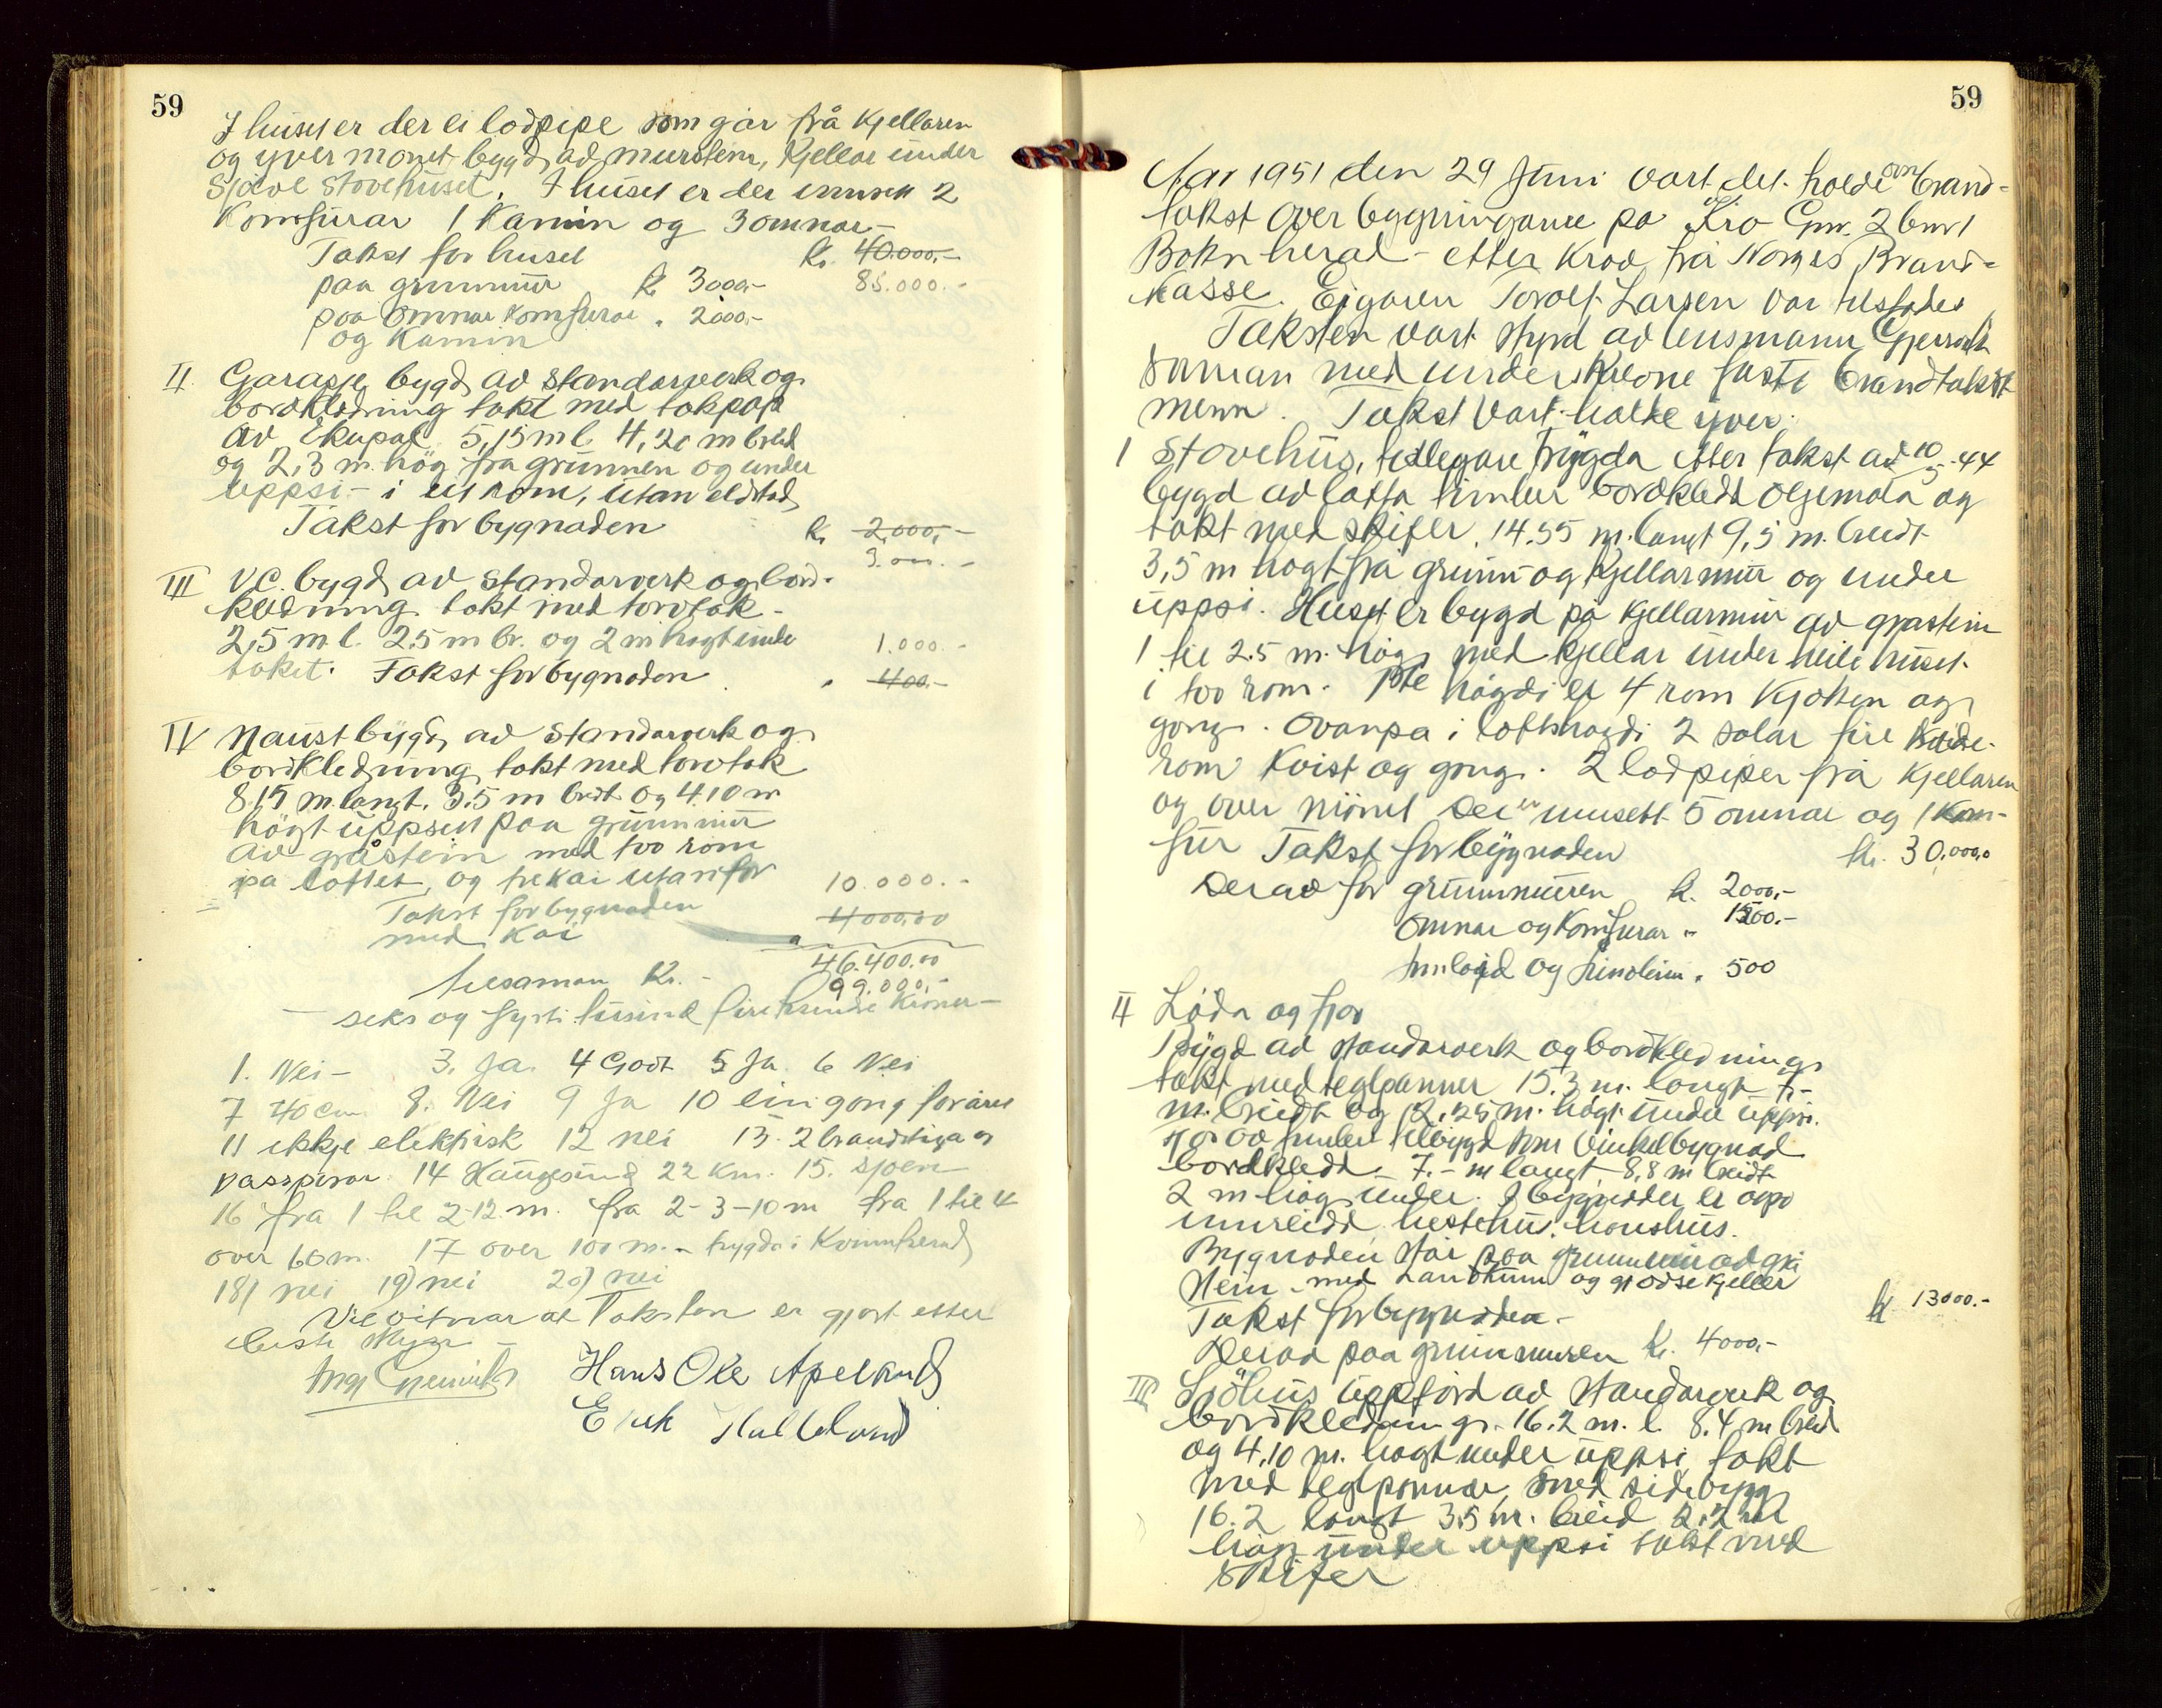 59
I huset er der ei lodpipe som går frå Kjellaren
og yver mønet bygd ad murstein, Kjellar under
Sjølve stovehuset. I huset er der innsett 2
Komfurar 1 Kamin og 3 omnar –
Takst for huset kr. 40.000,–
85.000.–
paa grunnmur kr 3000,–
paa Omnar Komfurar " 2000,–
og Kamin
II Garasje bygd av standarverk og
bordkledning takt med takpap
av Ekupal 5,15 m l. 4,20 m breid
og 2,3 m. høg fra grunnen og under
uppsi – i eit rom, utan eldstad
Takst for bygnaden kr 2,000,–
3.000.–
III V.C. bygd av standarverk og bord-
kledning takt med torvtak –
2,5 m l. 2.5 m br. og 2 m høgt under
1.000.–
taket. Takst for bygnaden " 400.–
IV Naust bygd av standarverk og
bordkledning takt med torvtak
8.15 m langt. 3.5 m breidt og 4.10 m
högt uppsett paa grunnmur
av gråstein med too rom
pa loftet, og trekai utanfor
10.000.–
Takst for bygnaden 4000,00
med Kai
46.400.00
tilsaman Kr. – 99.000,–
– seks og fyrti tusind firehundre kroner –
1. Nei – 3. Ja. 4 Godt 5 Ja 6 Nei
7 40 cm 8. Nei 9 Ja 10 ein gong for året
11 ikkje elektrisk 12 nei 13. 2 brandstiga er
passerar 14 Haugesund 22 Km. 15. sjøen
16 fra 1 til 2-12 m. fra 2-3-10 m fra 1 til 4
over 60 m. 17 over 100 m. – trygda i Kvinnherad
18) nei 19) nei 20) nei
Vi vitnar at Taksten er gjort etter
beste skjøn –
Hans Ole Apeland
Erik Halleland
59
Aar 1951 den 29 Juni vart det holde brand-
takst over bygningane på Kro Gnr. 2 bnr 1
Bokn herad – etter Krav frå Norges Brand-
kasse. Eigaren Torolf Larsen var tilstades
Taksten vart styrd av lensmann
saman med underskrevne faste brandtakst-
menn. Takst vart halde yver:
1 Stovehus, tidlegare trygda etter takst av 10/5-44
bygd av lafta timber bordkledd oljemala og
takt med skifer. 14.55 m. langt 9,5 m. breidt
3,5 m høgt frå grunn og kjellarmur og under
uppsi. Huset er bygd på kjellarmur av gråstein
1 til 2.5 m. høg med kjellar under heile huset
i too rom. 1ste høgdi er 4 rom Kjøken og
gong. Ovanpa i loftshøgdi 2 salar fire
rom Kvist og gong. 2 lodpiper frå Kjellaren
og over mønet Der er innsett 5 omnar og 1 Kom-
fur Takst for bygnaden kr. 30,000,0
Derav for grunnmuren kr. 2000,–
Omnar og Komfurar " 1500.–
Innlagd og linoleum " 500
II Löda og fjos
Bygd av standarverk og bordkledning
takt med teglpanner 15.3 m. langt 7 –
m. breidt og 2,25 m. høgt under uppsi.
Fjos av timber tilbygd som Vinkelbygnad
bordkledd. 7.– m langt 8,8 m breidt
2 m høg under. I bygnaden er ogso
innreidd hestehus, hønshus.
Bygnaden står paa grunnmur av grå
stein – med Landkum og gjødsekjeller
Takst for bygnaden – kr 13000.–
Derav paa grunnmuren Kr. 4000,–
III Sjöhus uppførd av standarverk og
bordkledning. 16.2 m. l. 8.4 m breid
og 4.10 m. høgt under uppsi takt
med teglpannar, med sidebygg
16.2 langt 3.5 m. breid 2.2 m
høg under uppsi takt med
Skifer